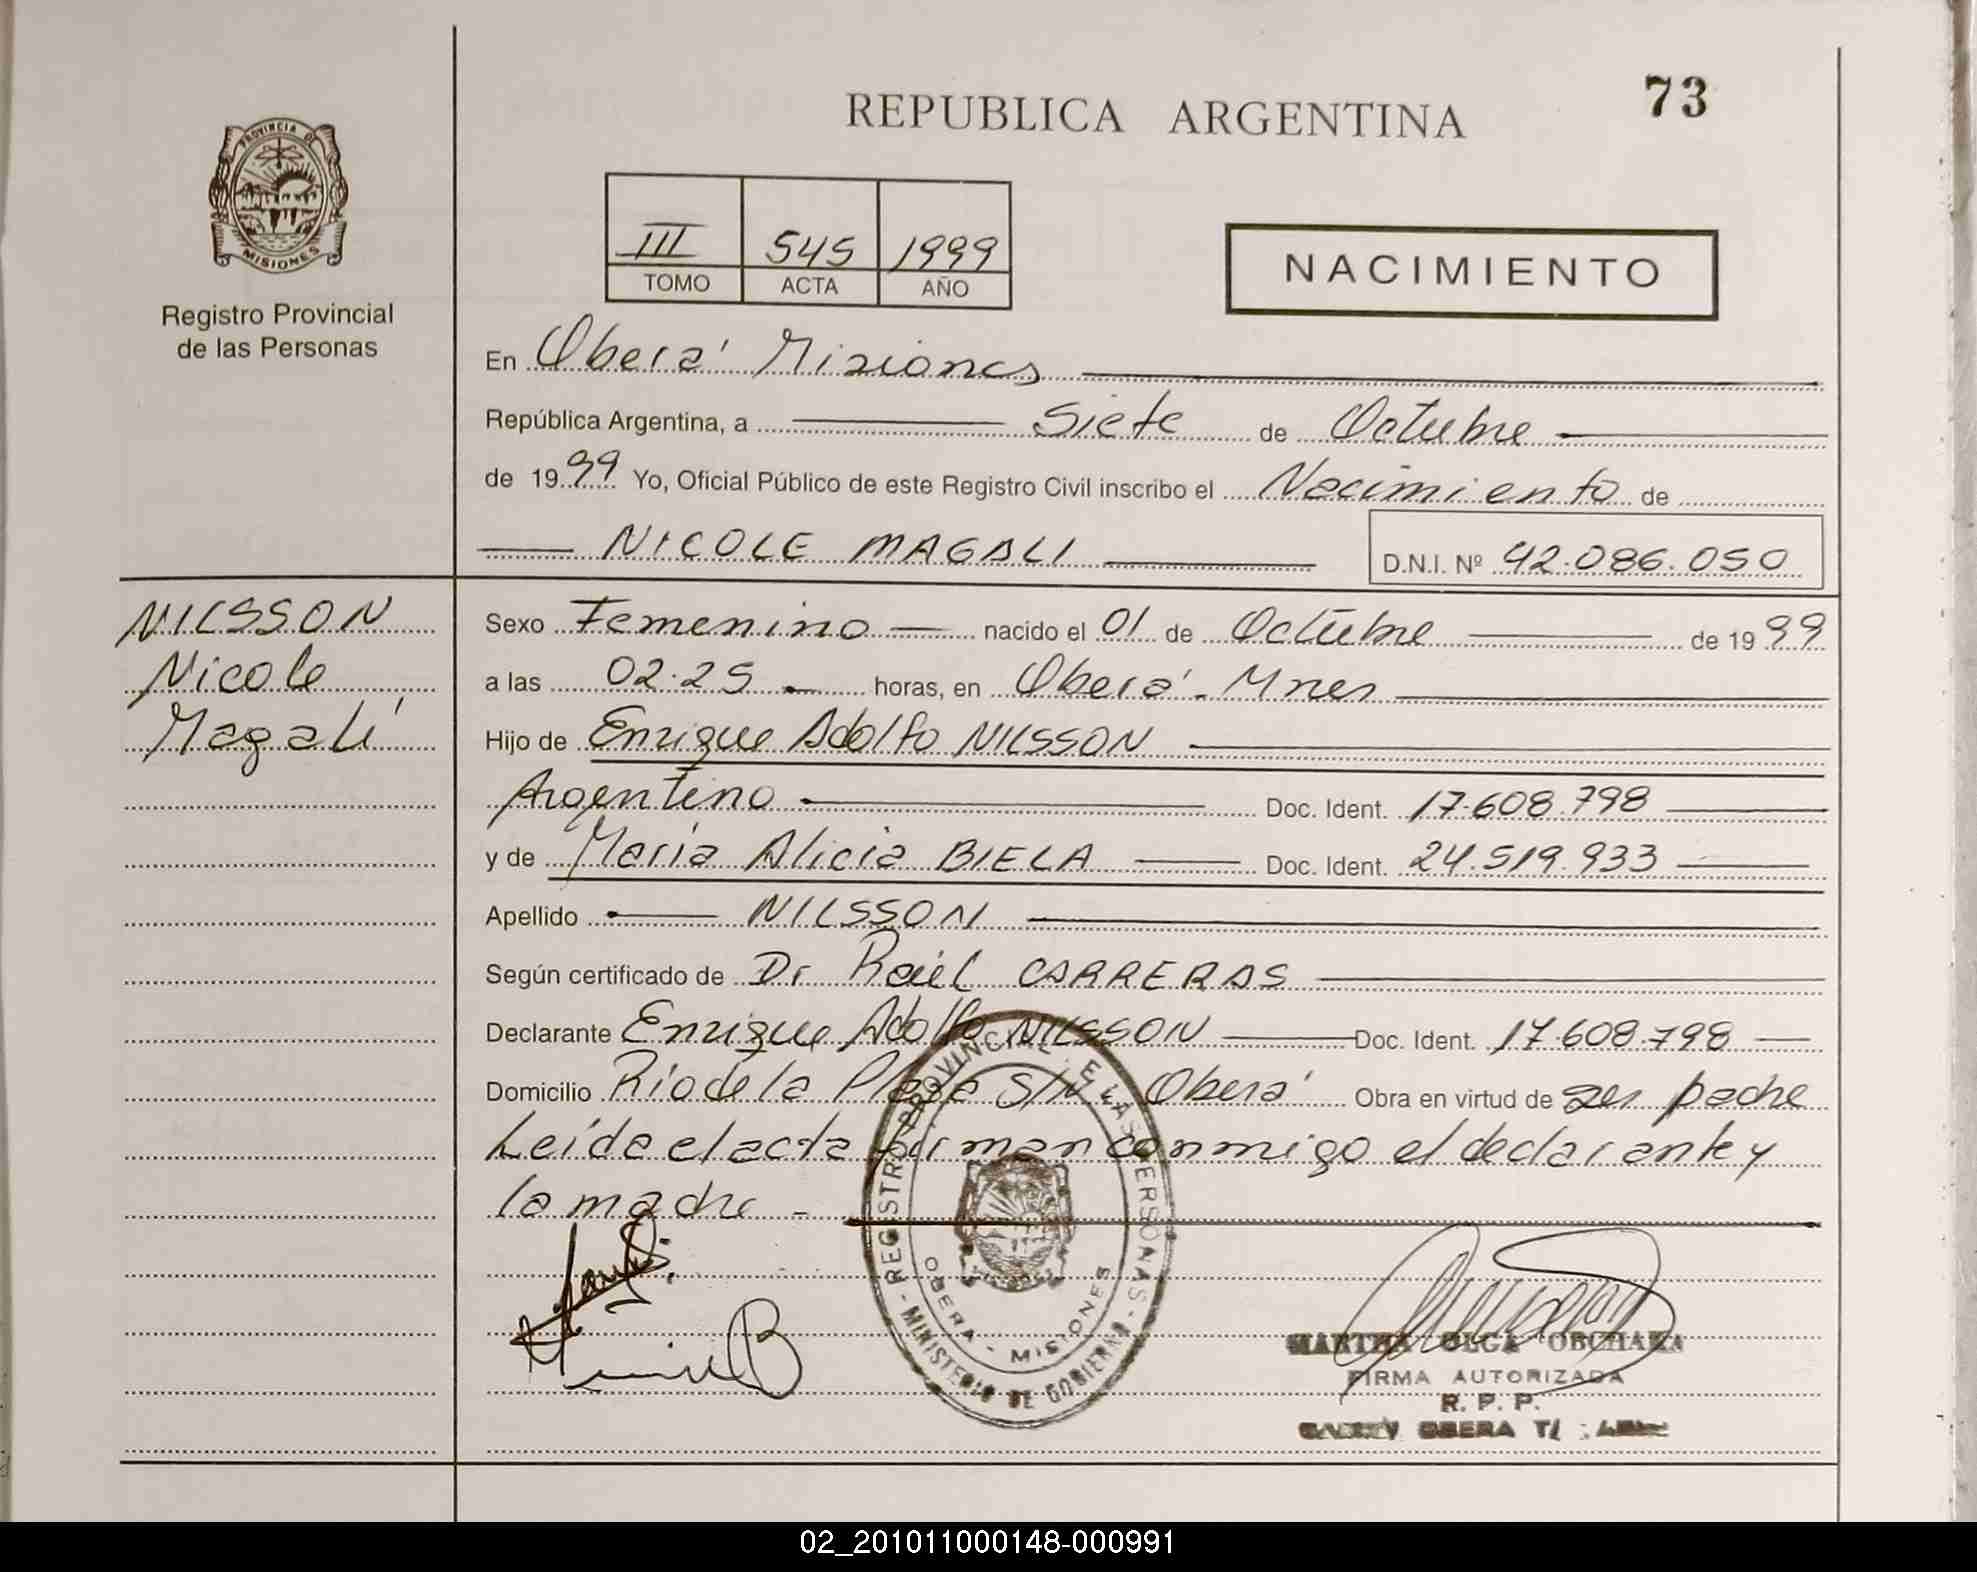 73
REPUBLICA ARGENTINA
PROVINCIA DE
MISIONES
Registro Provincial
de las Personas
III 545 1999
TOMO ACTA AÑO
NACIMIENTO
En Oberá Misiones
República Argentina, a Siete de Octubre
de 1999 Yo, Oficial Público de este Registro Civil inscribo el Nacimiento de
NICOLE MAGALI D.N.I. Nº 42.086.050
NILSSON
Nicole
Magalí
Sexo Femenino nacido el 01 de Octubre de 1999
a las 02.25 horas, en Oberá - Mnes
Hijo de Enrique Adolfo NILSSON
Argentino Doc. Ident. 17.608.798
y de María Alicia BIELA Doc. Ident. 24.519.933
Apellido NILSSON
Según certificado de Dr Raúl CARRERAS
Declarante Enrique Adolfo NILSSON Doc. Ident. 17.608.798
Domicilio Río de la Plata S/N Oberá Obra en virtud de ser padre
Leída el acta firman conmigo el declarante y
la madre -
REGISTRO PROVINCIAL E LAS PERSONAS
OBERA - MISIONES
- MINISTERIO DE GOBIERNO -
MARTHA OLGA
FIRMA AUTORIZADA
R. P. P.
OBERA
02_201011000148-000991